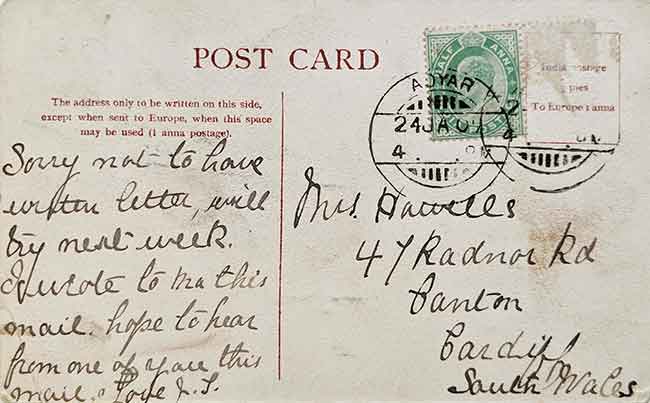 POST CARD
The address only to be written on this side,
except when sent to Europe, when this space
may be used (1 anna postage).
HALF ANNA
India postage
pies
To Europe 1 anna
ADYAR
24 JA 07
4
Sorry not to have
written letter, will
try next week.
I wrote to Ma this
mail. hope to hear
from one of you this
mail. Love
Mrs. Howells
47 Radnor Rd
Canton
Cardiff
South Wales